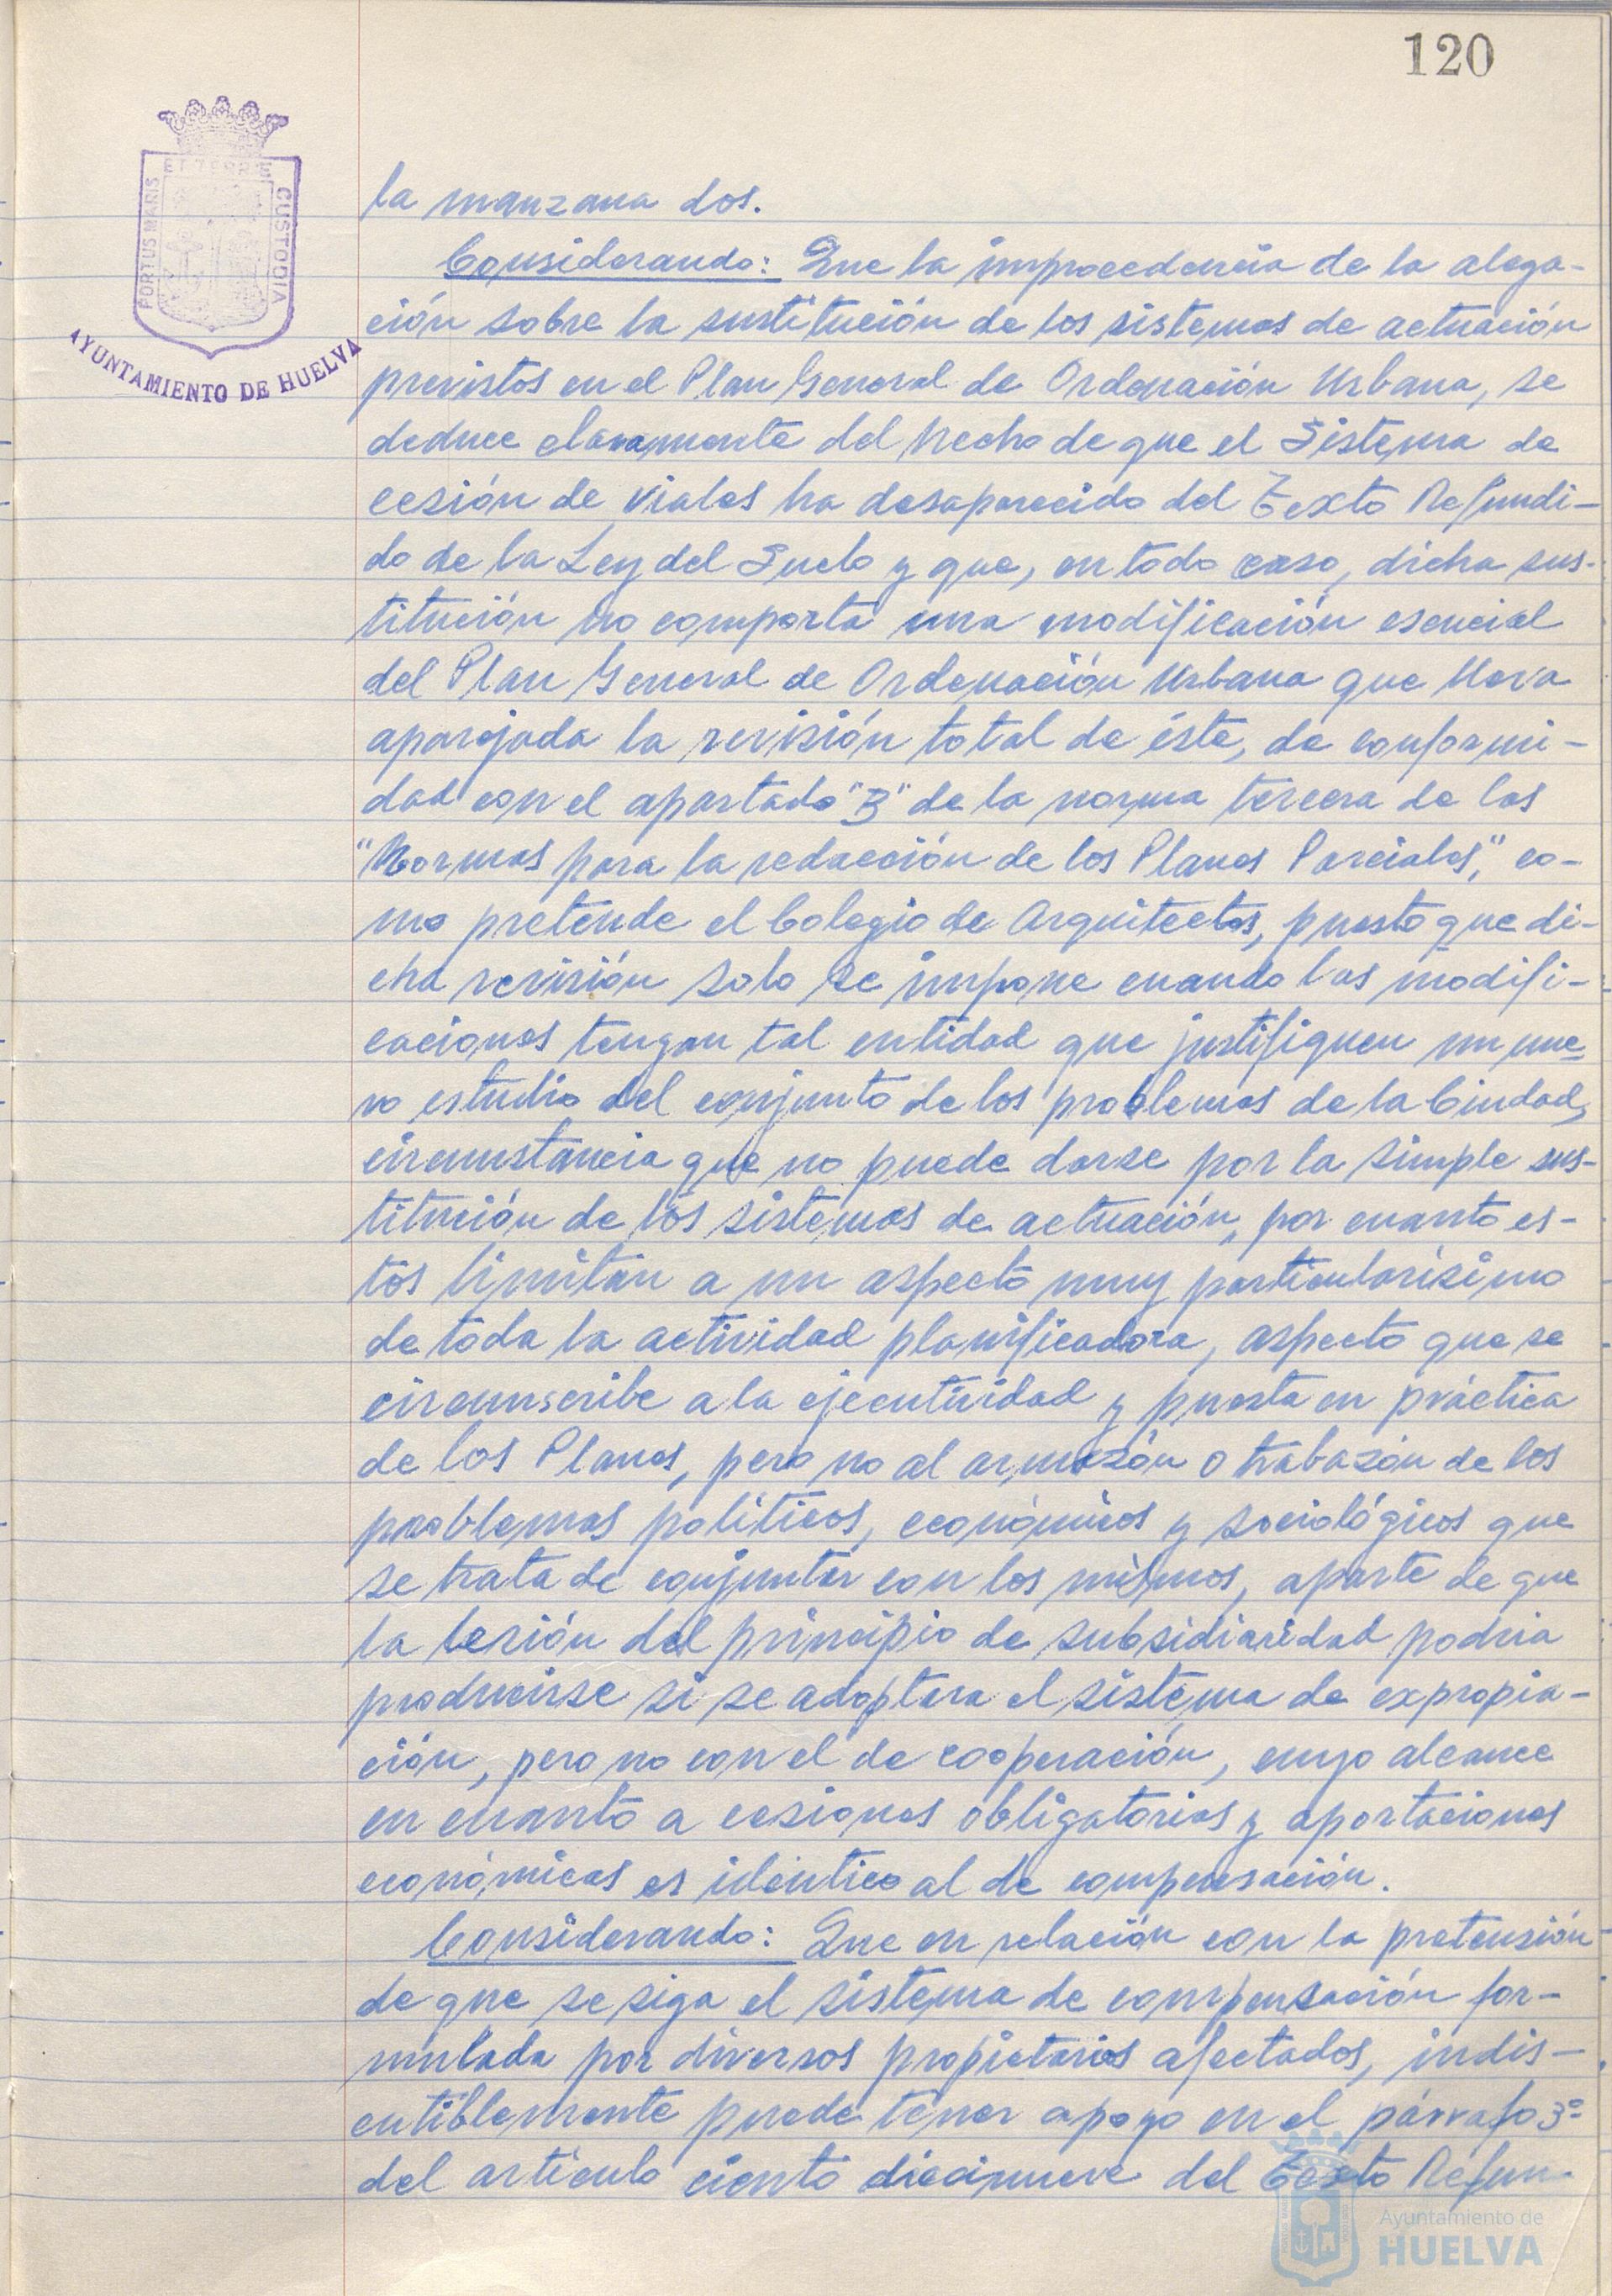 120
PORTUS MARIS ET TERRE CUSTODIA
AYUNTAMIENTO DE HUELVA
la manzana dos.
Considerando: Que la improcedencia de la alega-
ción sobre la sustitución de los sistemas de actuación
previstos en el Plan General de Ordenación Urbana, se
deduce claramente del hecho de que el Sistema de
cesión de viales ha desaparecido del Texto Refundi-
do de la Ley del Suelo y que, en todo caso, dicha sus-
titución no comporta una modificación esencial
del Plan General de Ordenación Urbana que lleva
aparejada la revisión total de éste, de conformi-
dad con el apartado "B" de la norma tercera de las
"Normas para la redacción de los Planes Parciales", co-
mo pretende el Colegio de Arquitectos, puesto que di-
cha revisión solo se impone cuando las modifi-
caciones tengan tal entidad que justifiquen un nue-
vo estudio del conjunto de los problemas de la Ciudad,
circunstancia que no puede darse por la simple sus-
titución de los sistemas de actuación, por cuanto es-
tos limitan a un aspecto muy particularísimo
de toda la actividad planificadora, aspecto que se
circunscribe a la ejecutividad y puesta en práctica
de los Planes, pero no al armazón o trabazón de los
problemas políticos, económicos y sociológicos que
se trata de conjuntar con los mismos, aparte de que
la lesión del principio de subsidiaridad podria
producirse si se adoptara el sistema de expropia-
ción, pero no con el de cooperación, cuyo alcance
en cuanto a cesiones obligatorias y aportaciones
económicas es idéntico al de compensación.
Considerando: Que en relación con la pretensión
de que se siga el sistema de compensación for-
mulada por diversos propietarios afectados, indis-
cutiblemente puede tener apoyo en el párrafo 3º
del artículo ciento diecinueve del Texto Refun-
Ayuntamiento de
HUELVA